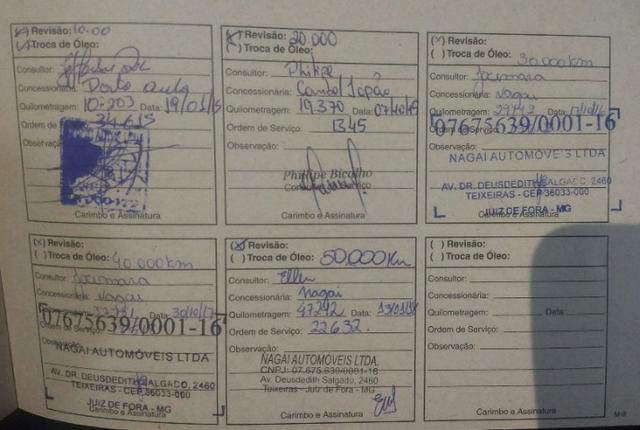 (x) Revisão: 10.00
( ) Troca de Óleo:
Consultor:
Concessionária:
Quilometragem: 10.203 Data: 19/01/15
Ordem de 34.615
Observação:
Carimbo e Assinatura
(x) Revisão: 20.000
( ) Troca de Óleo:
Consultor: Philipe
Concessionária: Cambol Japão
Quilometragem: 19.370 Data: 07/10/15
Ordem de Serviço: 1345
Observação:
Philipe Bicalho
(x) Revisão:
( ) Troca de Óleo: 30.000km
Consultor: Jocimara
Concessionária: Nagai
Quilometragem: Data:
07675639/0001-16
NAGAI AUTOMÓVEIS LTDA
AV. DR. DEUSDEDITH SALGADO, 2460
TEIXEIRAS - CEP 36033-000
JUIZ DE FORA - MG
Carimbo e Assinatura
(x) Revisão:
( ) Troca de Óleo: 40.000km
Consultor: Jocimara
Concessionária: Nagai
Data:
07675639/0001-16
Observação:
NAGAI AUTOMÓVEIS LTDA
AV. DR. DEUSDEDITH SALGADO, 2460
TEIXEIRAS - CEP 36033-000
JUIZ DE FORA - MG
Carimbo e Assinatura
(x) Revisão:
( ) Troca de Óleo: 50.000Km
Consultor: Ellen
Concessionária: Nagai
Quilometragem: 47242 Data:
Ordem de Serviço: 22632.
Observação:
NAGAI AUTOMÓVEIS LTDA.
CNPJ: 07.675.639/0001-16
Av. Deusdedith Salgado, 2460
Teixeiras - Juiz de Fora - MG
Carimbo e Assinatura
( ) Revisão:
( ) Troca de Óleo:
Consultor:
Concessionária:
Quilometragem: Data:
Ordem de Serviço:
Observação:
Carimbo e Assinatura